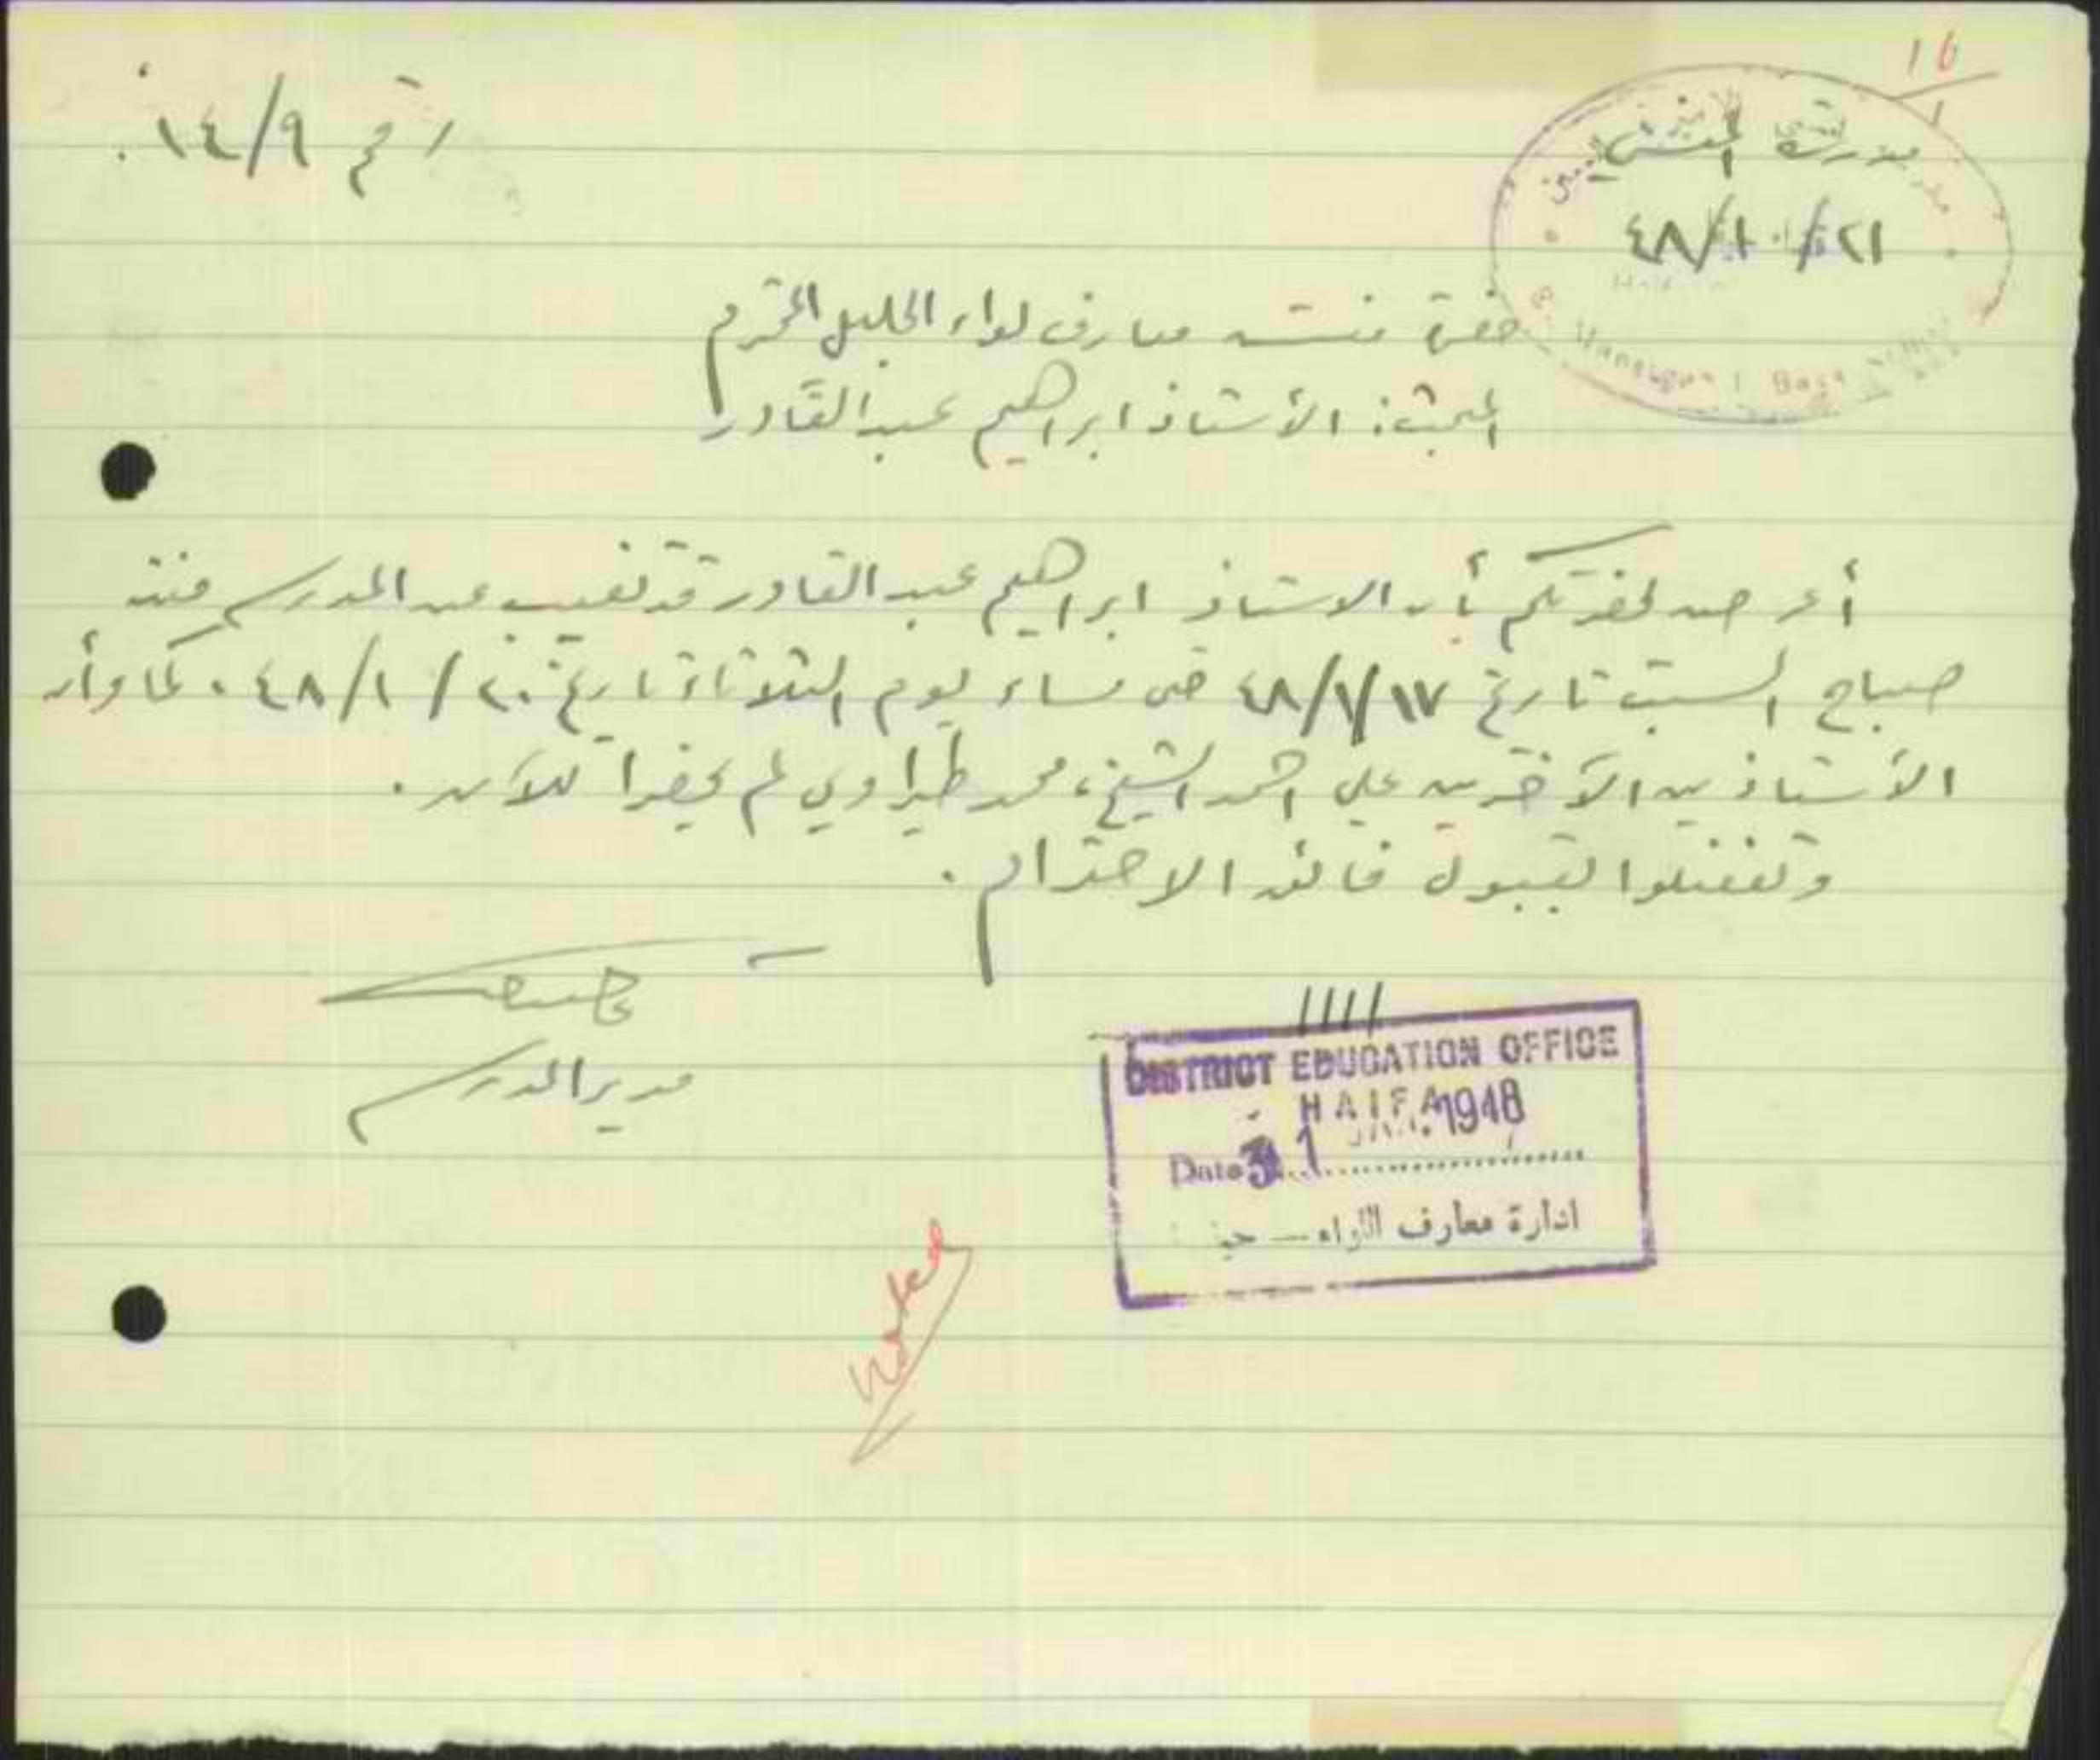 16
1
رقم ١٤/٩.
مدرسة
٤٨/١٠/٢١
حضرة مفتش معارف لواء الجليل المحترم
المبحث: الأستاذ ابراهيم عبد القادر
أعرض لحضرتكم بأن الاستاذ ابراهيم عبد القادر قد تغيب عن المدرسة منذ
صباح السبت تاريخ ٤٨/١/١٧ حتى مساء يوم الثلاثاء تاريخ ٢٠/١/٤٨. كما وأن
الأستاذين الآخرين علي احمد الشيخ، محمد طيراوي لم يحضرا للآن.
وتفضلوا بقبول فائق الاحترام.
مدير المدرسة
DISTRICT EDUCATION OFFICE
HAIFA
Date 31 JAN. 1948
ادارة معارف اللواء — حيفا
noted